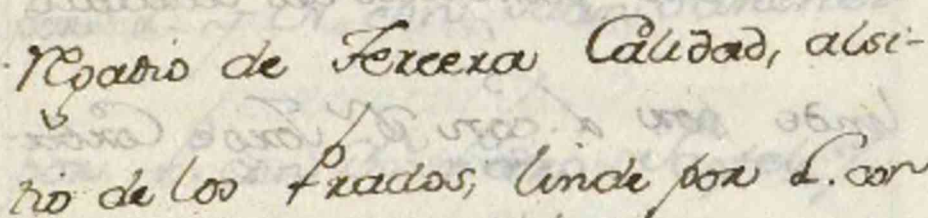 Regadio de Tercera Calidad, alsi-
tio de los Prados, linde por L. con